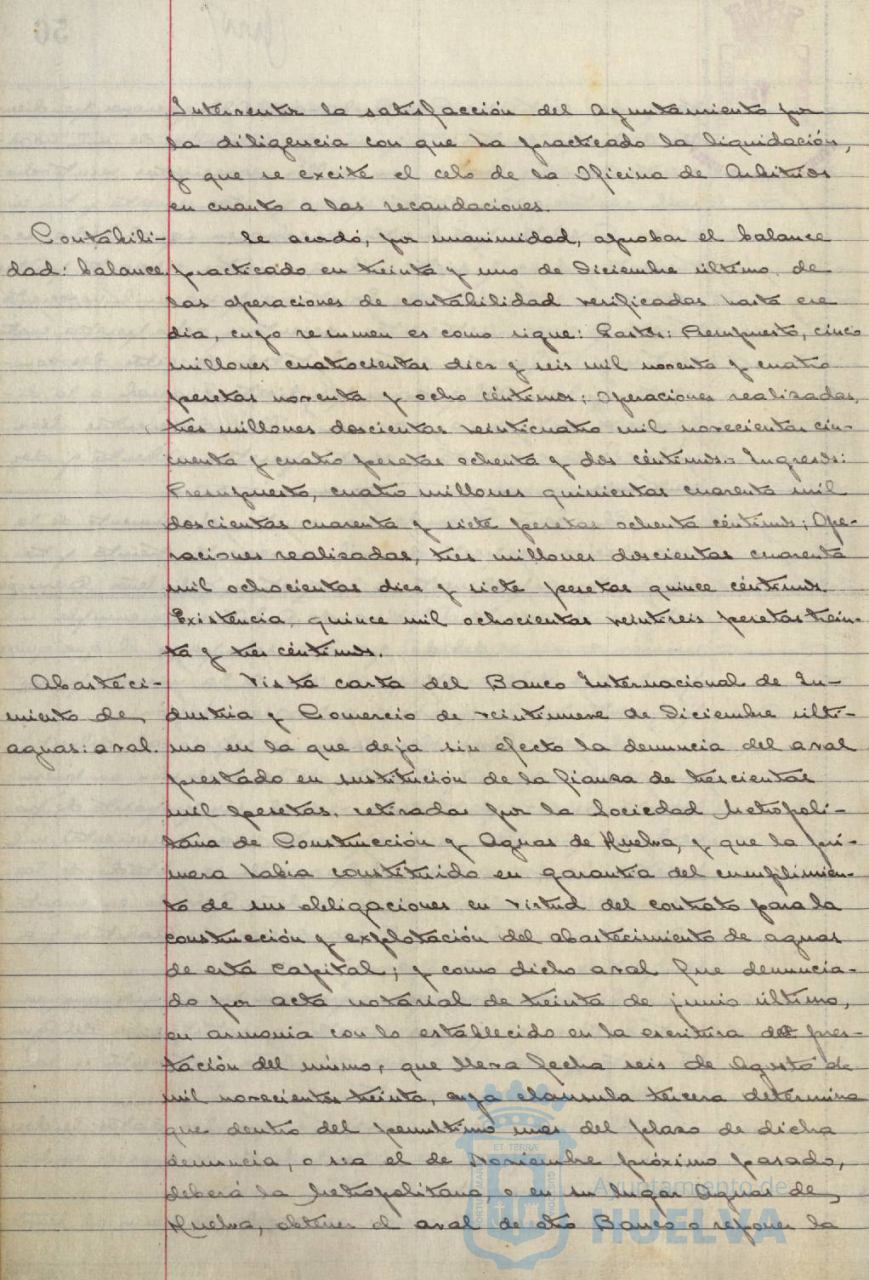 Interventor la satisfacción del Ayuntamiento por
la diligencia con que ha practicado la liquidación,
y que se excite el celo de la Oficina de Arbitrios
en cuanto a las recaudaciones.
Contabili-
dad: balance.
Se acordó, por unanimidad, aprobar el balance
practicado en treinta y uno de Diciembre último, de
las operaciones de contabilidad verificadas hasta ese
dia, cuyo resumen es como sigue: Gastos: Presupuesto, cinco
millones cuatrocientas diez y seis mil noventa y cuatro
pesetas noventa y ocho céntimos; Operaciones realizadas,
tres millones doscientas veinticuatro mil novecientas cin-
cuenta y cuatro pesetas ochenta y dos céntimos.- Ingresos:
Presupuesto, cuatro millones quinientas cuarenta mil
doscientas cuarenta y siete pesetas ochenta céntimos; Ope-
raciones realizadas, tres millones doscientas cuarenta
mil ochocientas diez y siete pesetas quince céntimos.
Existencia, quince mil ochocientas veintiseis pesetas trein-
ta y tres céntimos.
Abasteci-
miento de
aguas: aval.
Vista carta del Banco Internacional de In-
dustria y Comercio de veintinueve de Diciembre últi-
mo en la que deja sin efecto la denuncia del aval
prestado en sustitución de la fianza de trescientas
mil pesetas, retiradas por la Sociedad Metropoli-
tana de Construcción y Aguas de Huelva, y que la pri-
mera habia constituido en garantía del cumplimien-
to de sus obligaciones en virtud del contrato para la
construcción y explotación del abastecimiento de aguas
de esta Capital; y como dicho aval fue denuncia-
do por acta notarial de treinta de junio último,
en armonia con lo establecido en la escritura de pres-
tación del mismo, que lleva fecha seis de Agosto de
mil novecientos treinta, cuya clausula tercera determina
que dentro del penúltimo mes del plazo de dicha
denuncia, o sea el de Noviembre próximo pasado,
deberá la Metropolitana, o en su lugar Aguas de
Huelva, obtener el aval de otro Banco o reponer la
ET TERRA
Ayuntamiento de
HUELVA